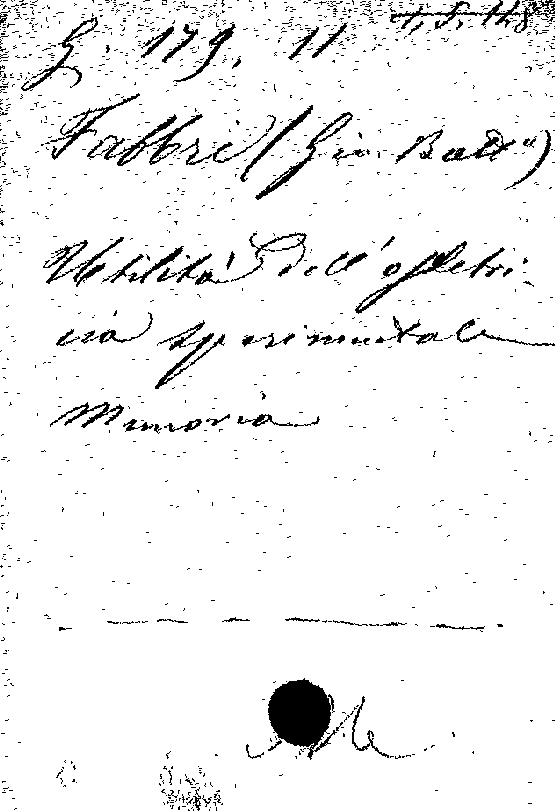 G. 179. 11
Fabbri (Gio. Batta)
Utilità dell'ostetri-
cia sperimentale
Memoria